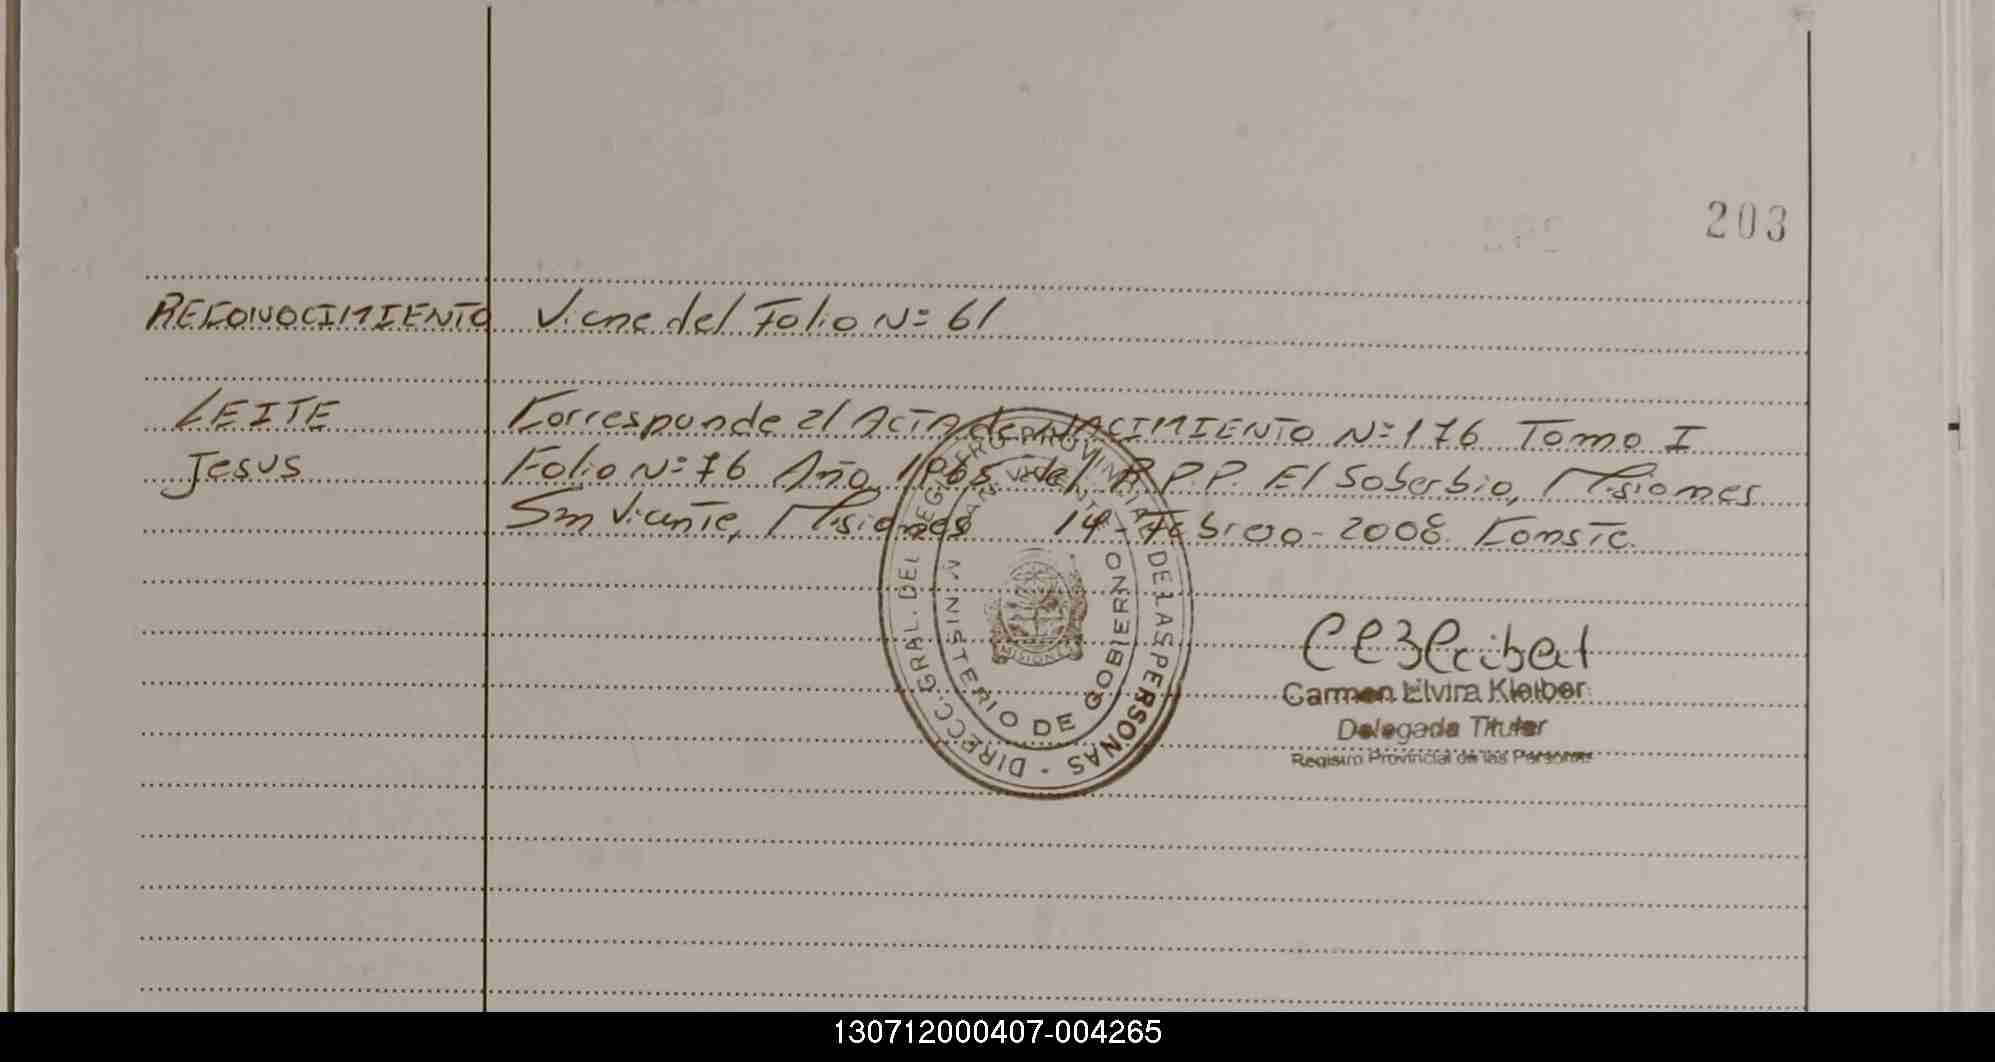 203
RECONOCIMIENTO Viene del Folio Nº 61
LEITE Corresponde al Acta de NACIMIENTO Nº 176 Tomo I
Jesus Folio Nº 76 Año 1965 del R.P.P. El Soberbio, Misiones
San Vicente, Misiones 14-Febrero-2008. Conste.
DIRECC. GRAL. DEL REGISTRO PROVINCIAL DE LAS PERSONAS -
SAN VICENTE
MINISTERIO DE GOBIERNO
MISIONES
Carmen Elvira Kleiber
Delegada Titular
Registro Provincial de las Personas
130712000407-004265